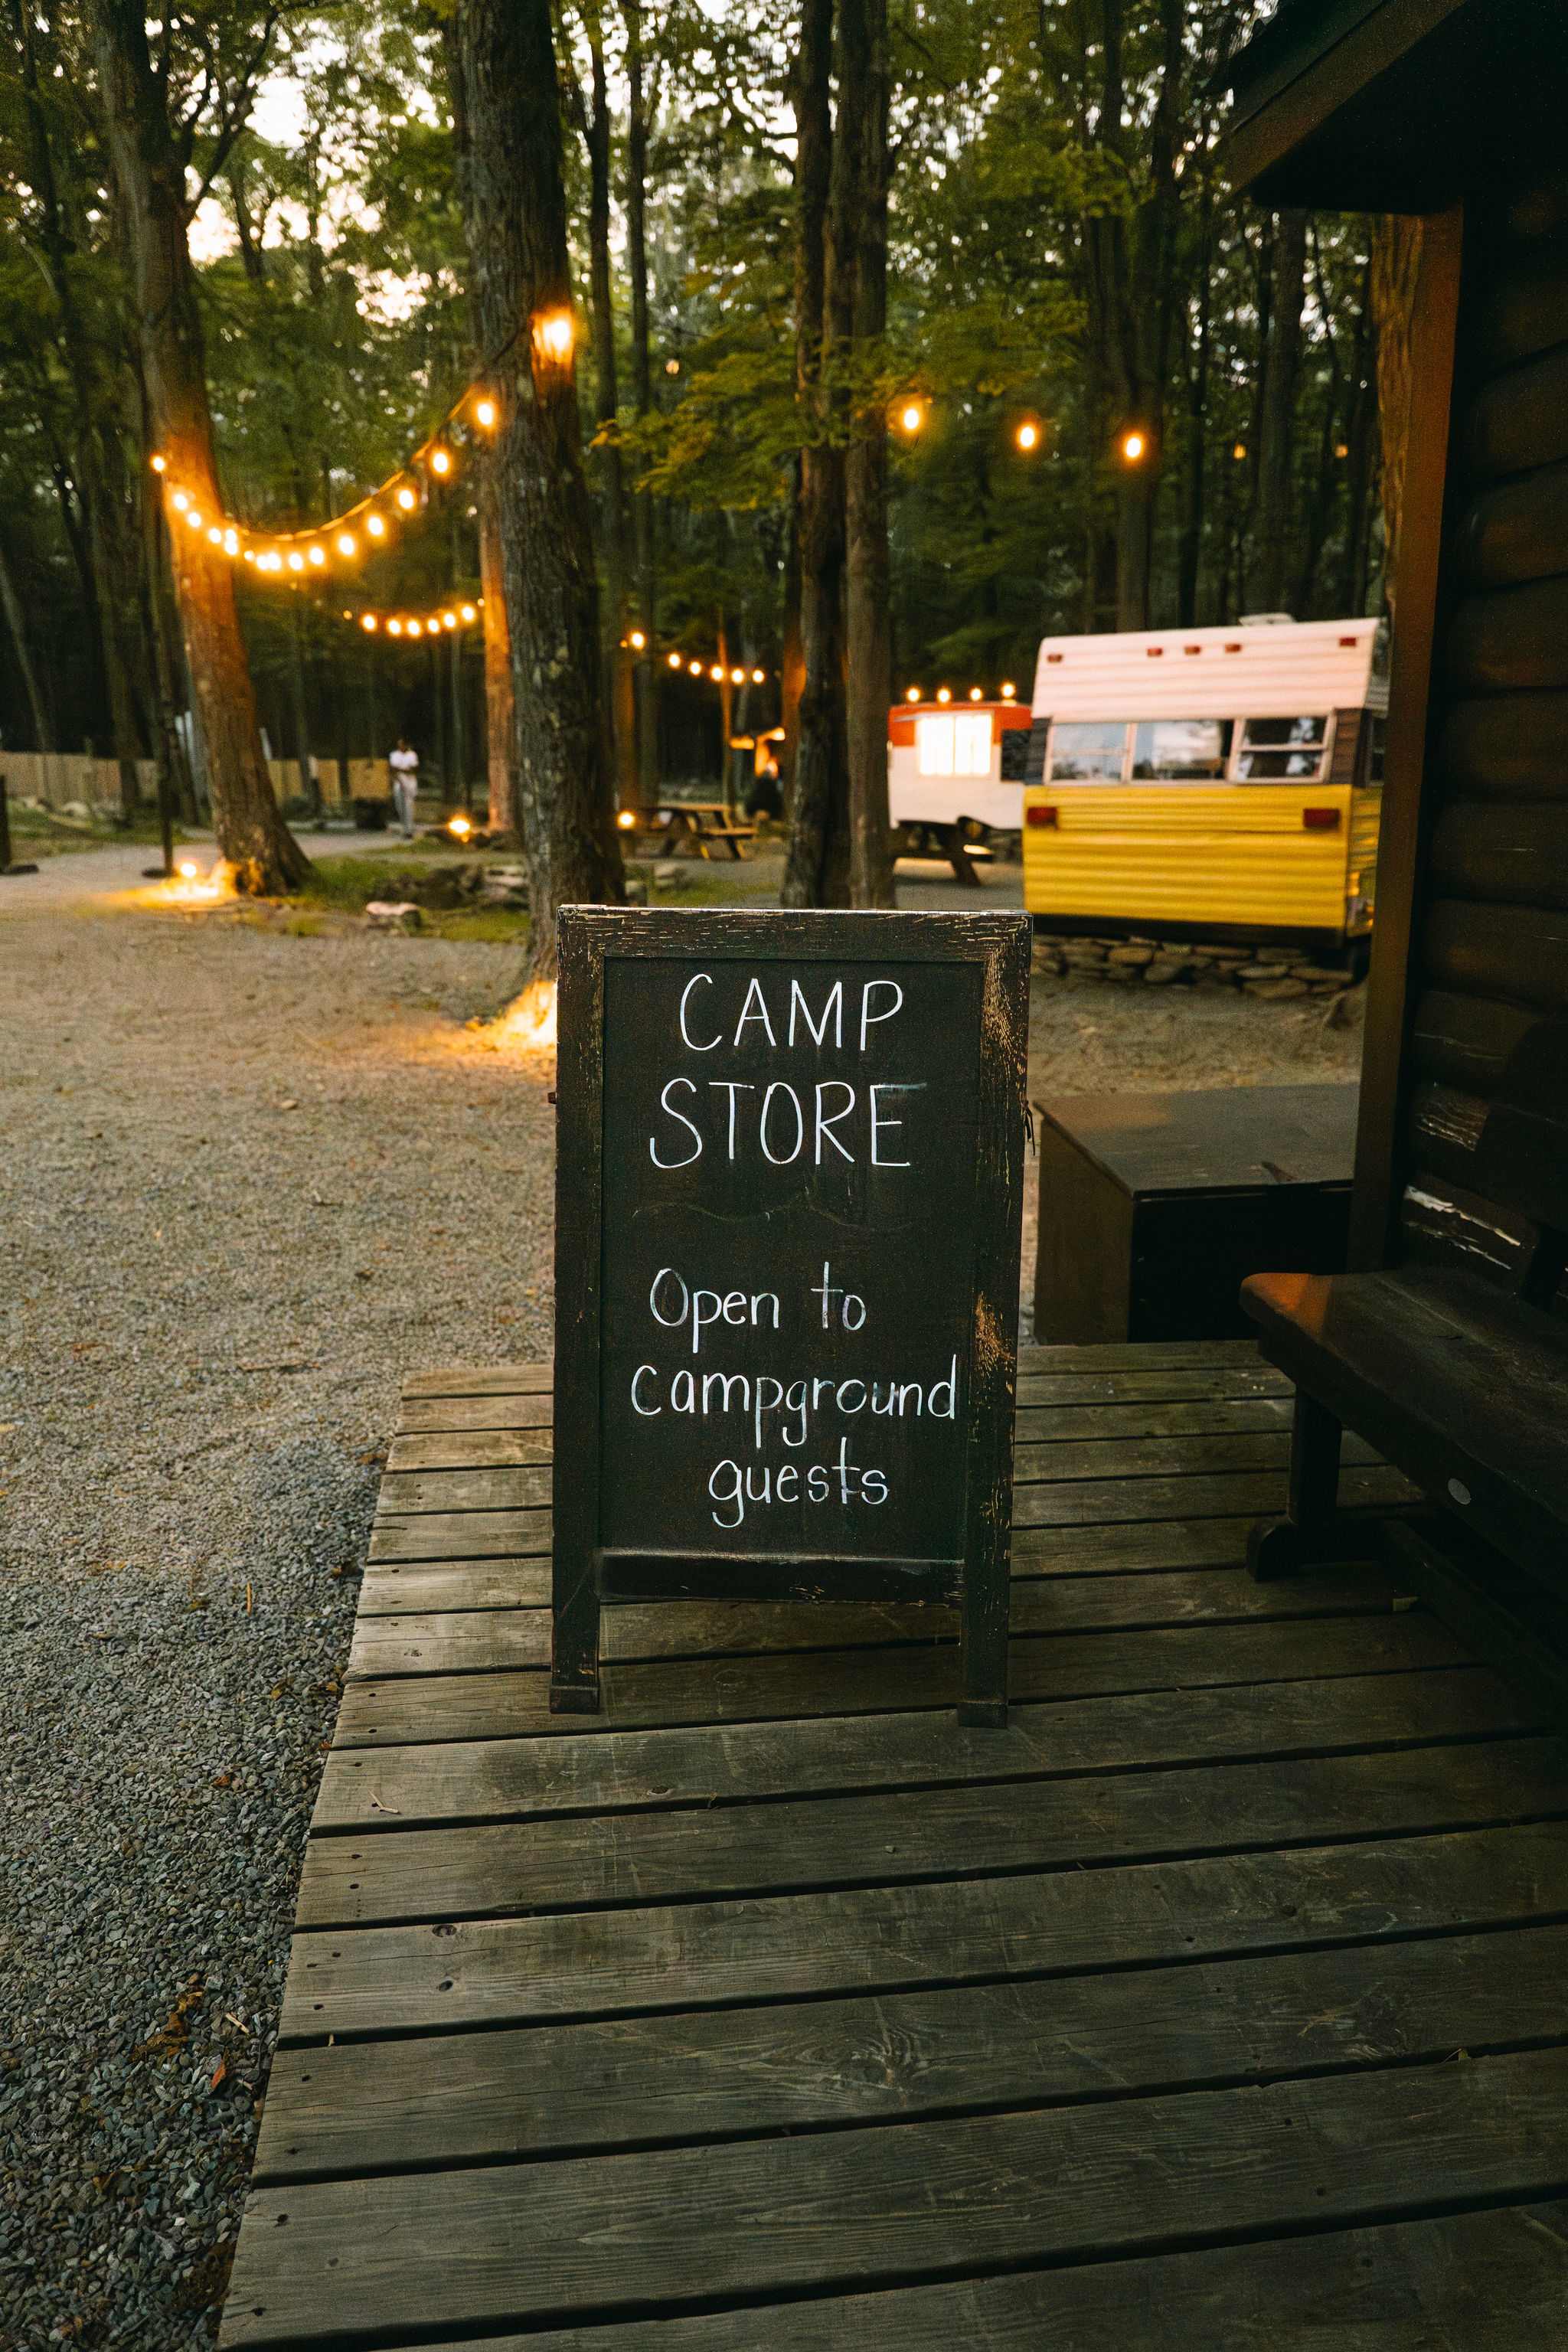 CAMP
STORE
Open to
campground
guests